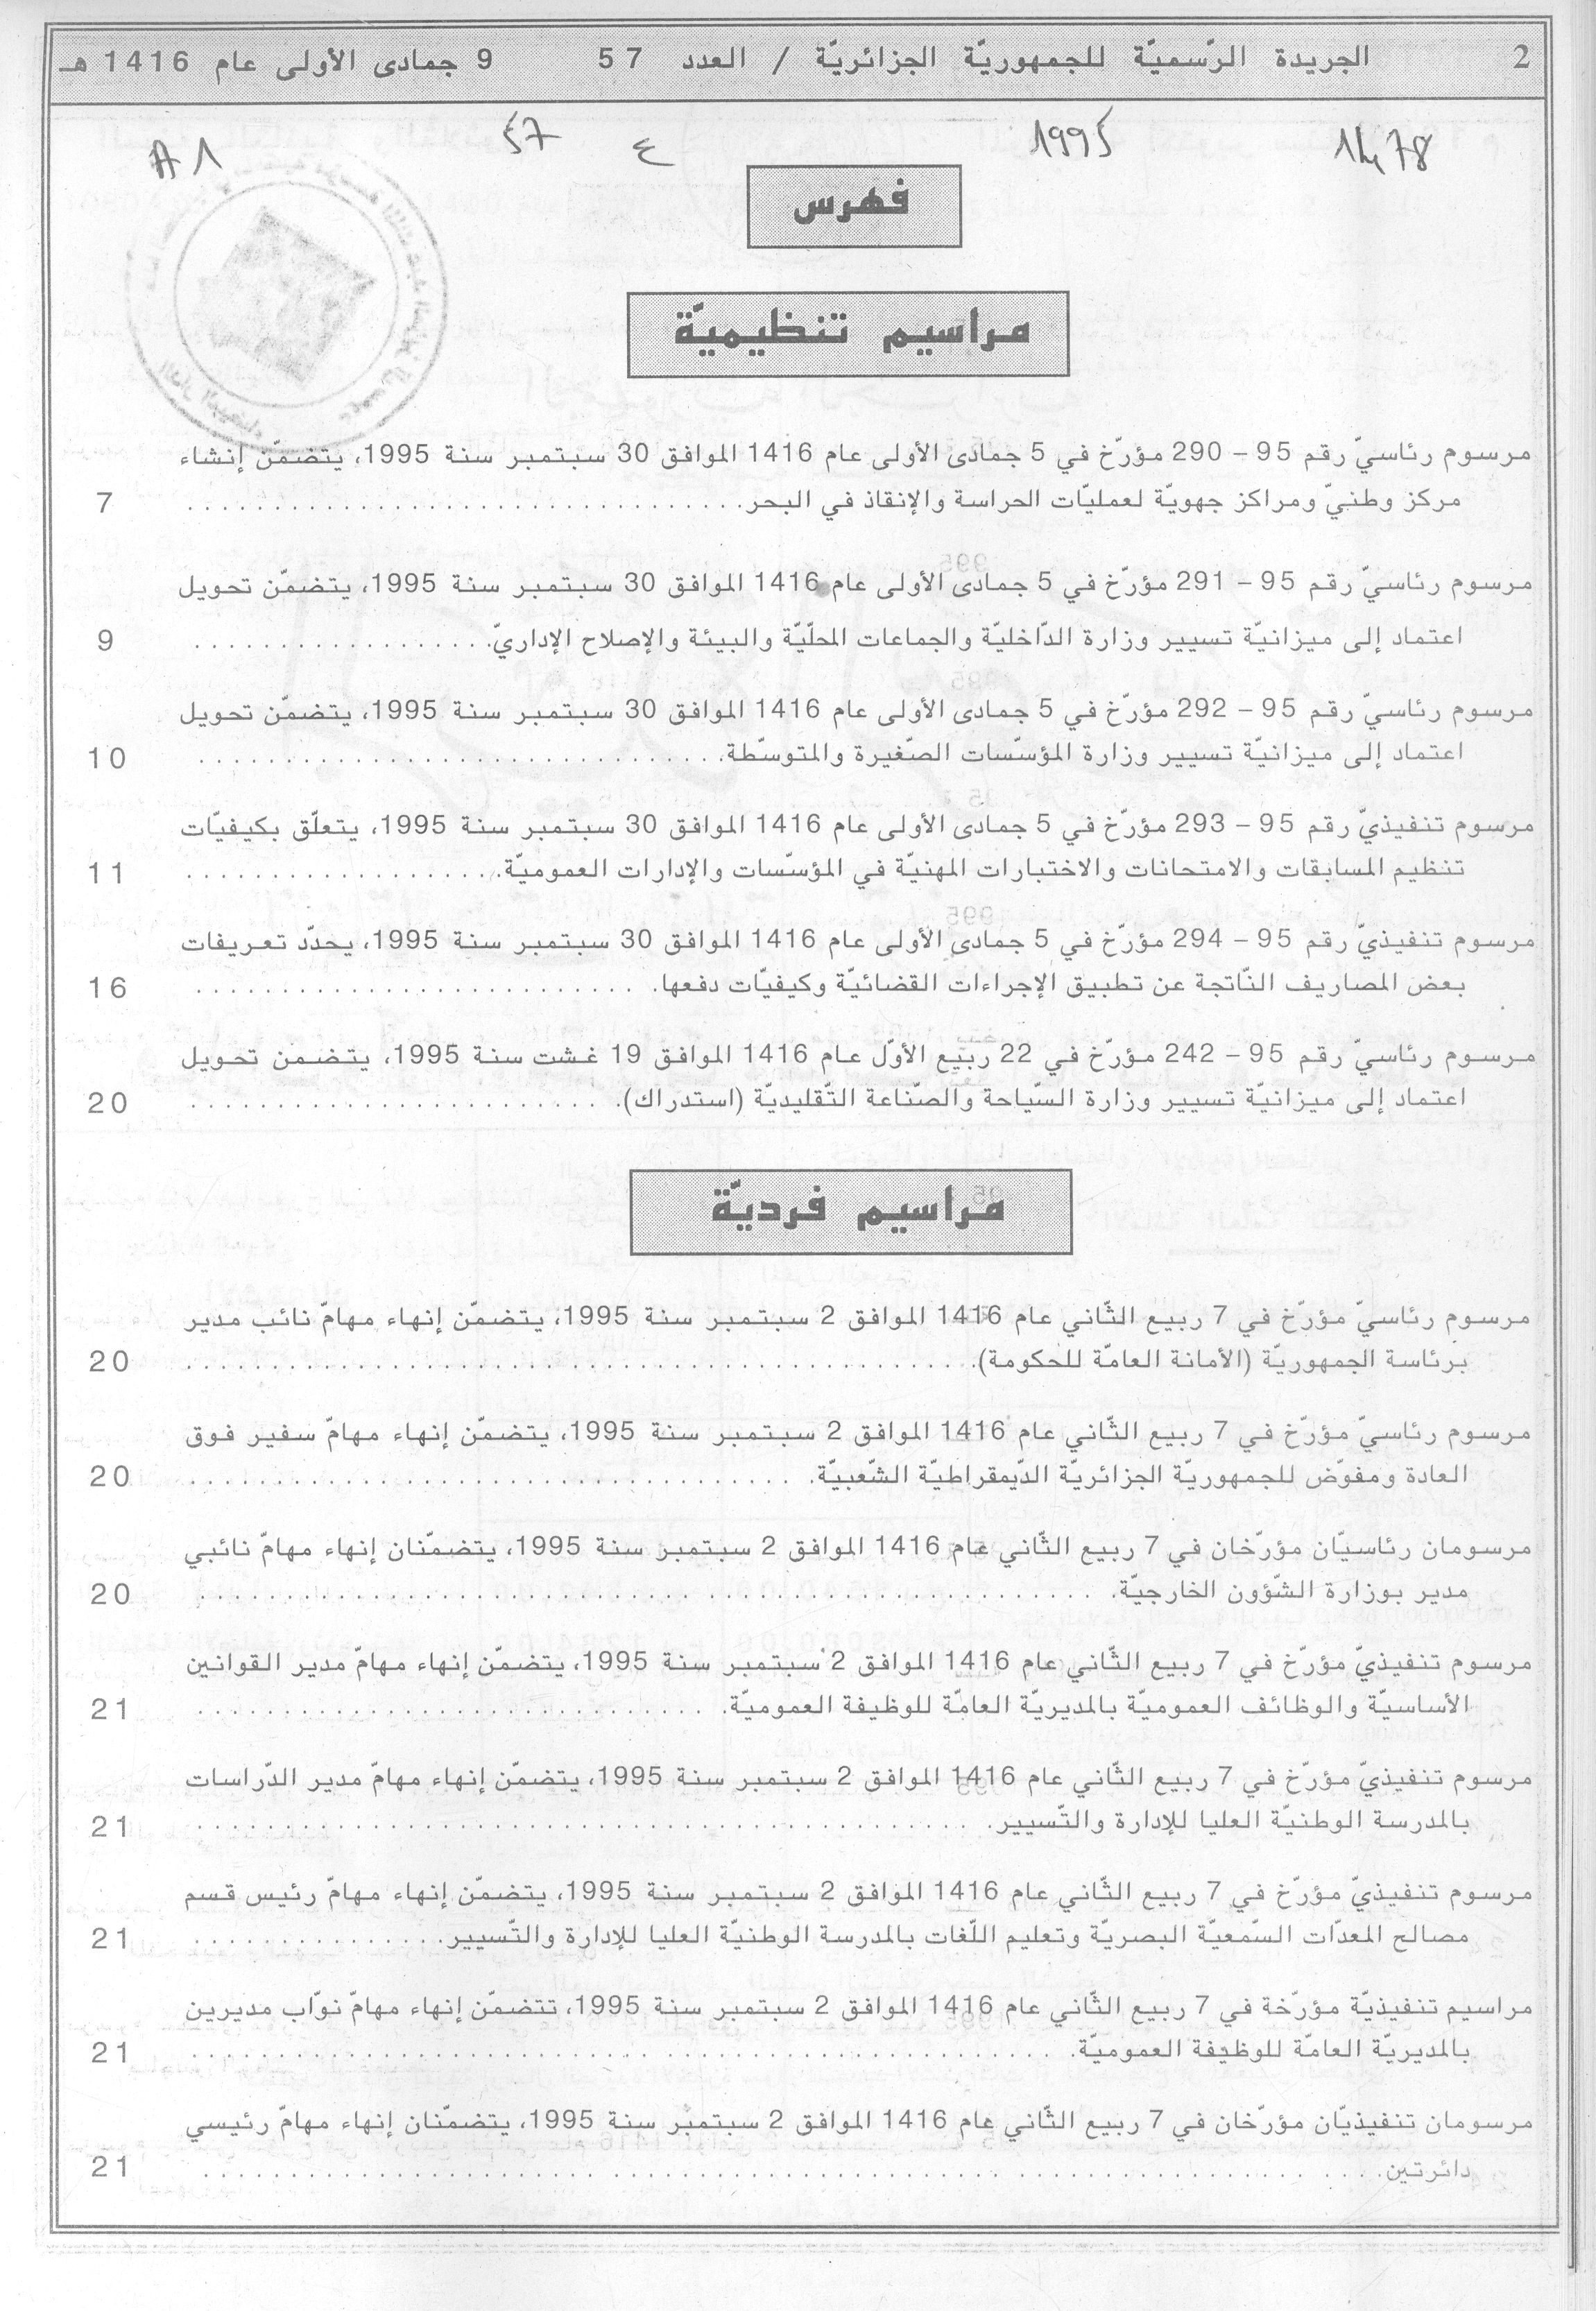 2 الجريدة الرّسميّة للجمهوريّة الجزائريّة / العدد 57 9 جمادى الأولى عام 1416 هـ
1478 1995 ع 57 A1
فهرس
مراسيم تنظيميّة
مرسوم رئاسيّ رقم 95 – 290 مؤرّخ في 5 جمادى الأولى عام 1416 الموافق 30 سبتمبر سنة 1995، يتضمّن إنشاء
مركز وطنيّ ومراكز جهويّة لعمليّات الحراسة والإنقاذ في البحر. 7
مرسوم رئاسيّ رقم 95 – 291 مؤرّخ في 5 جمادى الأولى عام 1416 الموافق 30 سبتمبر سنة 1995، يتضمّن تحويل
اعتماد إلى ميزانيّة تسيير وزارة الدّاخليّة والجماعات المحلّيّة والبيئة والإصلاح الإداريّ. 9
مرسوم رئاسيّ رقم 95 – 292 مؤرّخ في 5 جمادى الأولى عام 1416 الموافق 30 سبتمبر سنة 1995، يتضمّن تحويل
اعتماد إلى ميزانيّة تسيير وزارة المؤسّسات الصّغيرة والمتوسّطة. 10
مرسوم تنفيذيّ رقم 95 – 293 مؤرّخ في 5 جمادى الأولى عام 1416 الموافق 30 سبتمبر سنة 1995، يتعلّق بكيفيّات
تنظيم المسابقات والامتحانات والاختبارات المهنيّة في المؤسّسات والإدارات العموميّة. 11
مرسوم تنفيذيّ رقم 95 – 294 مؤرّخ في 5 جمادى الأولى عام 1416 الموافق 30 سبتمبر سنة 1995، يحدّد تعريفات
بعض المصاريف النّاتجة عن تطبيق الإجراءات القضائيّة وكيفيّات دفعها. 16
مرسوم رئاسيّ رقم 95 – 242 مؤرّخ في 22 ربيع الأوّل عام 1416 الموافق 19 غشت سنة 1995، يتضمن تحويل
اعتماد إلى ميزانيّة تسيير وزارة السّياحة والصّناعة التّقليديّة (استدراك). 20
مراسيم فرديّة
مرسوم رئاسيّ مؤرّخ في 7 ربيع الثّاني عام 1416 الموافق 2 سبتمبر سنة 1995، يتضمّن إنهاء مهامّ نائب مدير
برئاسة الجمهوريّة (الأمانة العامّة للحكومة). 20
مرسوم رئاسيّ مؤرّخ في 7 ربيع الثّاني عام 1416 الموافق 2 سبتمبر سنة 1995، يتضمّن إنهاء مهامّ سفير فوق
العادة ومفوّض للجمهوريّة الجزائريّة الدّيمقراطيّة الشّعبيّة. 20
مرسومان رئاسيّان مؤرّخان في 7 ربيع الثّاني عام 1416 الموافق 2 سبتمبر سنة 1995، يتضمّنان إنهاء مهامّ نائبي
مدير بوزارة الشّؤون الخارجيّة. 20
مرسوم تنفيذيّ مؤرّخ في 7 ربيع الثّاني عام 1416 الموافق 2 سبتمبر سنة 1995، يتضمّن إنهاء مهامّ مدير القوانين
الأساسيّة والوظائف العموميّة بالمديريّة العامّة للوظيفة العموميّة. 21
مرسوم تنفيذيّ مؤرّخ في 7 ربيع الثّاني عام 1416 الموافق 2 سبتمبر سنة 1995، يتضمّن إنهاء مهامّ مدير الدّراسات
بالمدرسة الوطنيّة العليا للإدارة والتّسيير. 21
مرسوم تنفيذيّ مؤرّخ في 7 ربيع الثّاني عام 1416 الموافق 2 سبتمبر سنة 1995، يتضمّن إنهاء مهامّ رئيس قسم
مصالح المعدّات السّمعيّة البصريّة وتعليم اللّغات بالمدرسة الوطنيّة العليا للإدارة والتّسيير. 21
مراسيم تنفيذيّة مؤرّخة في 7 ربيع الثّاني عام 1416 الموافق 2 سبتمبر سنة 1995، تتضمّن إنهاء مهامّ نوّاب مديرين
بالمديريّة العامّة للوظيفة العموميّة. 21
مرسومان تنفيذيّان مؤرّخان في 7 ربيع الثّاني عام 1416 الموافق 2 سبتمبر سنة 1995، يتضمّنان إنهاء مهامّ رئيسي
دائرتين. 21